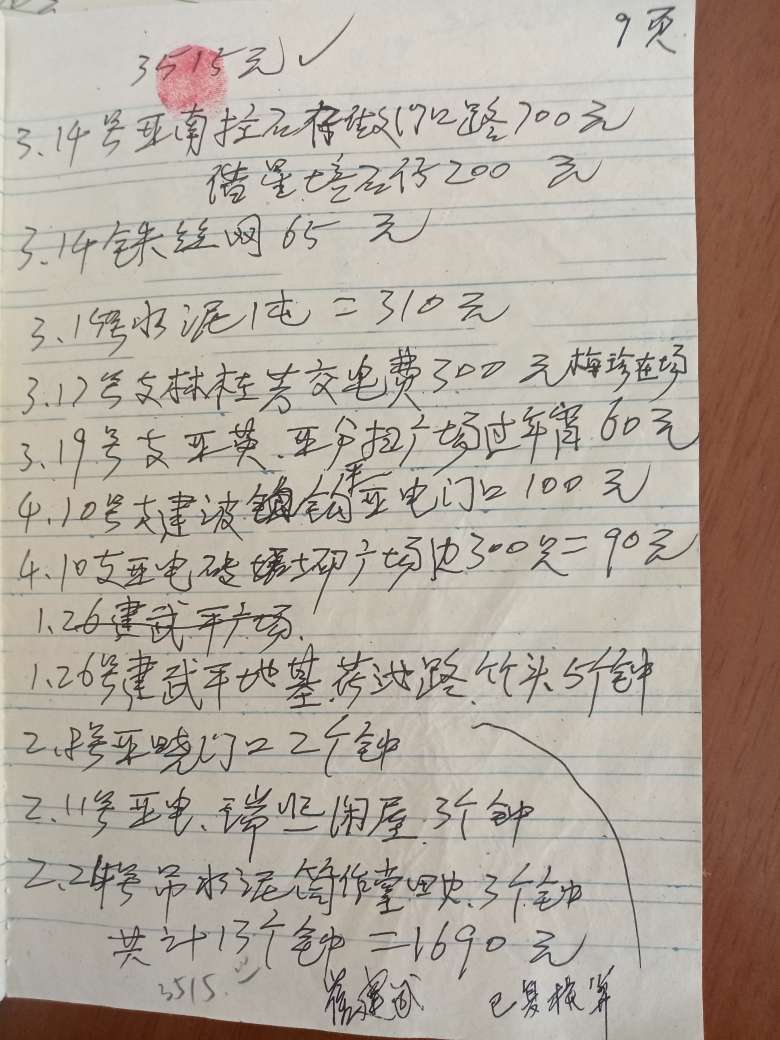 9页
3515元✓
3.14号亚南拉石仔做门口路700元
借星填石仔200元
3.14铁丝网65元
3.15号水泥1吨=310元
3.17号支林桂芳交电费300元梅珍在场
3.19号支亚英.亚分扫广场过年宵60元
4.10号支建波 来亚电门口100元
4.10支亚电砖 广场边300只=90元
1.26建武平广场.
1.26号建武平地基.荷池路.竹头5个钟
2.8号亚晓门口2个钟
2.11号亚电.瑞照闲屋.3个钟
2.24号吊水泥筒作堂 .3个钟
共计13个钟=1690元
3515.✓
建武 已复核算